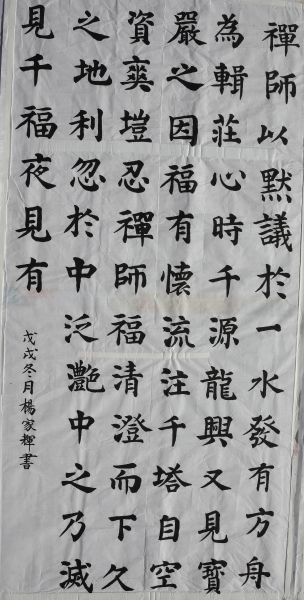 禪師以默議於一水發有方舟
為輯莊心時千源龍興又見寶
嚴之因福有懷流注千塔自空
資奭塏忍禪師福清澄而下久
之地利忽於中泛灔中之乃滅
見千福夜見有
戊戌冬月楊家輝書